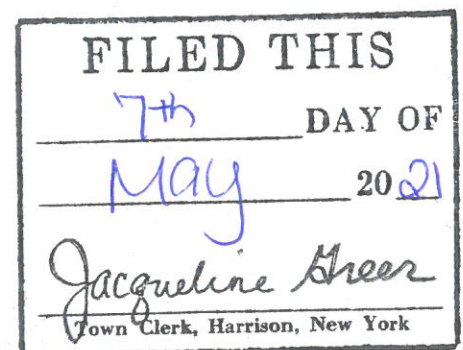 FILED THIS
7th DAY OF
May 20 21
Jacqueline Greer
Town Clerk, Harrison, New York